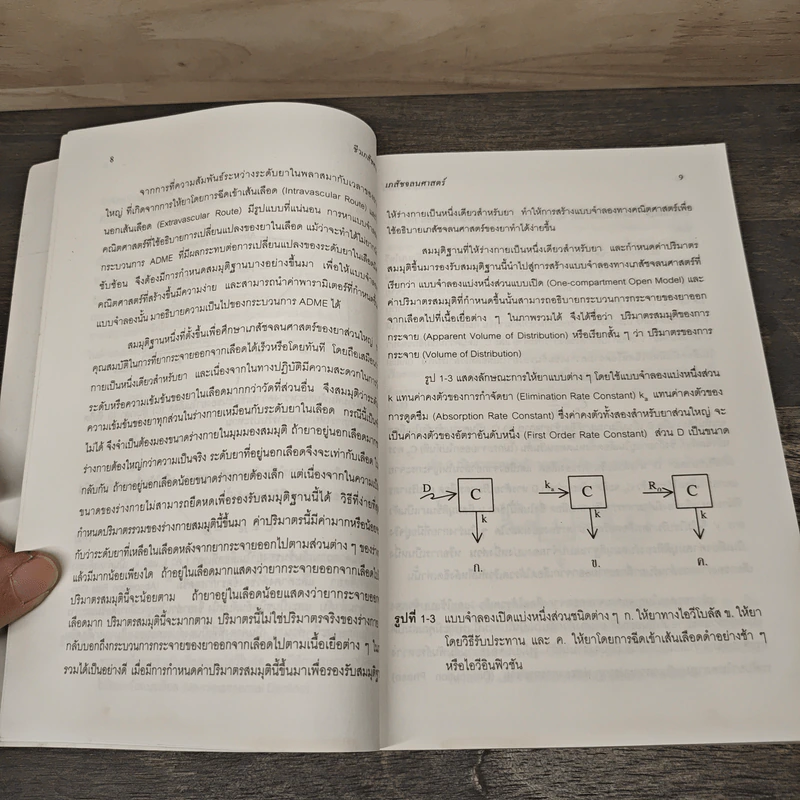 8
จากการที่ความสัมพันธ์ระหว่างระดับยาในพลาสมากับเวลา
ใหญ่ ที่เกิดจากการให้ยาโดยการฉีดเข้าเส้นเลือด (Intravascular Route)
นอกเส้นเลือด (Extravascular Route) มีรูปแบบที่แน่นอน การหาแบบจำลอง
คณิตศาสตร์ที่ใช้อธิบายการเปลี่ยนแปลงของยาในเลือด แม้ว่าจะทำได้ไม่ยาก
กระบวนการ ADME ที่มีผลกระทบต่อการเปลี่ยนแปลงของระดับยาในเลือด
ซับซ้อน จึงต้องมีการกำหนดสมมุติฐานบางอย่างขึ้นมา เพื่อให้แบบจำลอง
คณิตศาสตร์ที่สร้างขึ้นมีความง่าย และสามารถนำค่าพารามิเตอร์ที่กำหนด
แบบจำลองนั้น มาอธิบายความเป็นไปของกระบวนการ ADME ได้
สมมุติฐานหนึ่งที่ตั้งขึ้นเพื่อศึกษาเภสัชจลนศาสตร์ของยาส่วนใหญ่
คุณสมบัติในการที่ยากระจายออกจากเลือดได้เร็วหรือโดยทันที โดยถือเสมือน
กายเป็นหนึ่งเดียวสำหรับยา และเนื่องจากในทางปฏิบัติมีความสะดวกในการ
ระดับหรือความเข้มข้นของยาในเลือดมากกว่าวัดที่ส่วนอื่น จึงสมมุติว่าระดับ
ความเข้มข้นของยาทุกส่วนในร่างกายเหมือนกับระดับยาในเลือด กรณีนี้เป็น
ไม่ได้ จึงจำเป็นต้องมองขนาดร่างกายในมุมมองสมมุติ ถ้ายาอยู่นอกเลือดมาก
ร่างกายต้องใหญ่กว่าความเป็นจริง ระดับยาที่อยู่นอกเลือดจึงจะเท่ากับเลือด
กลับกัน ถ้ายาอยู่นอกเลือดน้อยขนาดร่างกายต้องเล็ก แต่เนื่องจากในความเป็น
ขนาดของร่างกายไม่สามารถยืดหดเพื่อรองรับสมมุติฐานนี้ได้ วิธีที่ง่ายที่สุด
กำหนดปริมาตรรวมของร่างกายสมมุตินี้ขึ้นมา ค่าปริมาตรนี้มีค่ามากหรือน้อย
กับว่าระดับยาที่เหลือในเลือดหลังจากยากระจายออกไปตามส่วนต่าง ๆ ของร่าง
แล้วมีมากน้อยเพียงใด ถ้าอยู่ในเลือดมากแสดงว่ายากระจายออกจากเลือดไป
ปริมาตรสมมุตินี้จะน้อยตาม ถ้าอยู่ในเลือดน้อยแสดงว่ายากระจายออก
เลือดมาก ปริมาตรสมมุตินี้จะมากตาม ปริมาตรนี้ไม่ใช่ปริมาตรจริงของร่างกาย
กลับบอกถึงกระบวนการกระจายของยาออกจากเลือดไปตามเนื้อเยื่อต่าง ๆ ใน
รวมได้เป็นอย่างดี เมื่อมีการกำหนดค่าปริมาตรสมมุตินี้ขึ้นมาเพื่อรองรับสมมุติฐ
เภสัชจลนศาสตร์ 9
ให้ร่างกายเป็นหนึ่งเดียวสำหรับยา ทำให้การสร้างแบบจำลองทางคณิตศาสตร์เพื่อ
ใช้อธิบายเภสัชจลนศาสตร์ของยาทำได้ง่ายขึ้น
สมมุติฐานที่ให้ร่างกายเป็นหนึ่งเดียวสำหรับยา และกำหนดค่าปริมาตร
สมมุติขึ้นมารองรับสมมุติฐานนี้นำไปสู่การสร้างแบบจำลองทางเภสัชจลนศาสตร์ที่
เรียกว่า แบบจำลองแบ่งหนึ่งส่วนแบบเปิด (One-compartment Open Model) และ
ค่าปริมาตรสมมุติที่กำหนดขึ้นนั้นสามารถอธิบายกระบวนการกระจายของยาออก
จากเลือดไปที่เนื้อเยื่อต่าง ๆ ในภาพรวมได้ จึงได้ชื่อว่า ปริมาตรสมมุติของการ
กระจาย (Apparent Volume of Distribution) หรือเรียกสั้น ๆ ว่า ปริมาตรของการ
กระจาย (Volume of Distribution)
รูป 1-3 แสดงลักษณะการให้ยาแบบต่าง ๆ โดยใช้แบบจำลองแบ่งหนึ่งส่วน
k แทนค่าคงตัวของการกำจัดยา (Elimination Rate Constant) kₐ แทนค่าคงตัวของ
การดูดซึม (Absorption Rate Constant) ซึ่งค่าคงตัวทั้งสองสำหรับยาส่วนใหญ่ จะ
เป็นค่าคงตัวของอัตราอันดับหนึ่ง (First Order Rate Constant) ส่วน D เป็นขนาด
D C kₐ C R₀ C
k k k
ก. ข. ค.
รูปที่ 1-3 แบบจำลองเปิดแบ่งหนึ่งส่วนชนิดต่าง ๆ ก. ให้ยาทางไอวีโบลัส ข. ให้ยา
โดยวิธีรับประทาน และ ค. ให้ยาโดยการฉีดเข้าเส้นเลือดดำอย่างช้า ๆ
หรือไอวีอินฟิวชัน